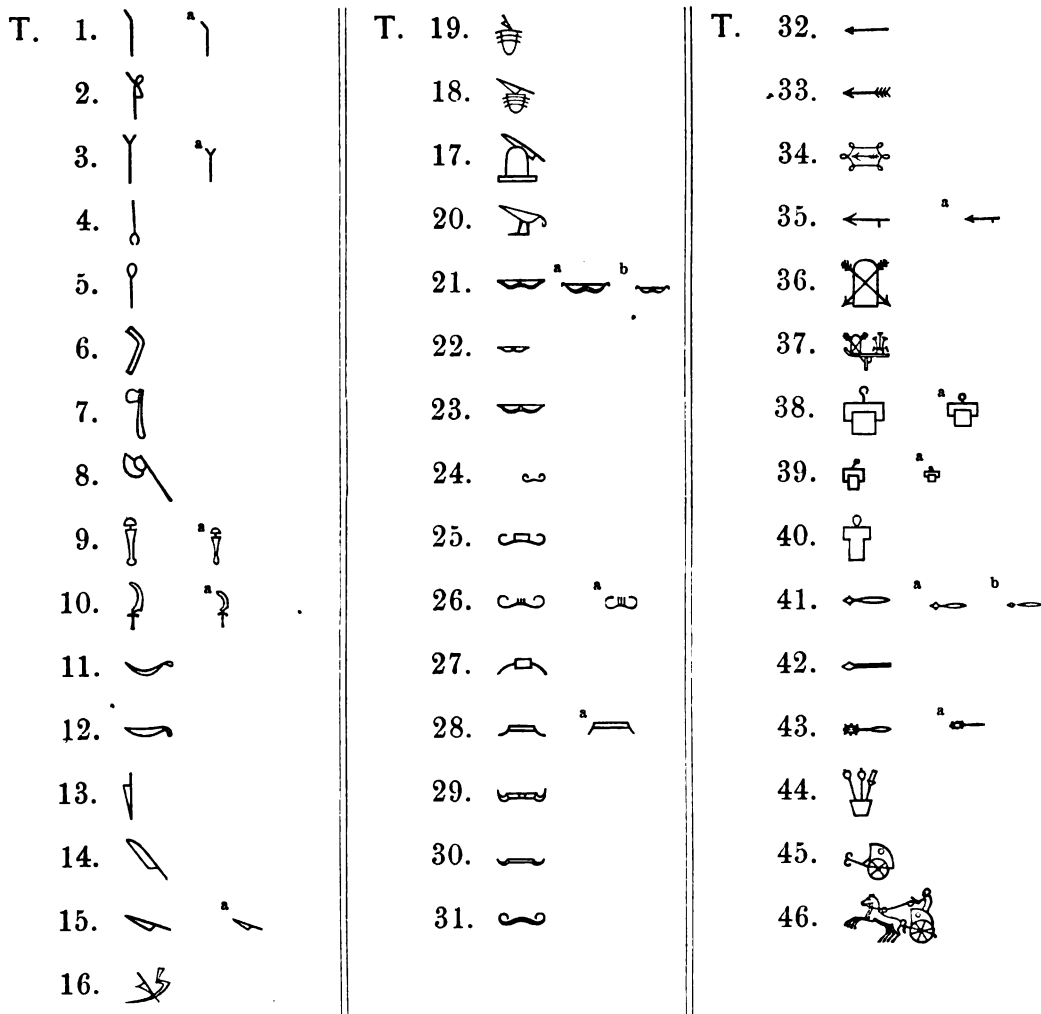 T. 1. a
2.
3. a
4.
5.
6.
7.
8.
9. a
10. a
11.
12.
13.
14.
15. a
16.
T. 19.
18.
17.
20.
21. a b
22.
23.
24.
25.
26. a
27.
28. a
29.
30.
31.
T. 32.
33.
34.
35. a
36.
37.
38. a
39. a
40.
41. a b
42.
43. a
44.
45.
46.